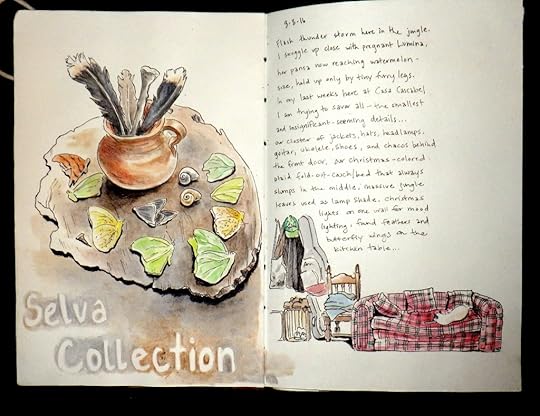 Selva
Collection
3-8-16
Flash thunder storm here in the jungle.
I snuggle up close with pregnant Lumina,
her panza now reaching watermelon-
size, held up only by tiny furry legs.
In my last weeks here at Casa Cascabel,
I am trying to savor all - the smallest
and insignificant-seeming details...
our cluster of jackets, hats, headlamps,
guitar, ukelele, shoes, and chacos behind
the front door, our christmas-colored
plaid fold-out-couch/bed that always
slumps in the middle, massive jungle
leaves used as lamp shade, christmas
lights on one wall for mood
lighting, found feathers and
butterfly wings on the
kitchen table...